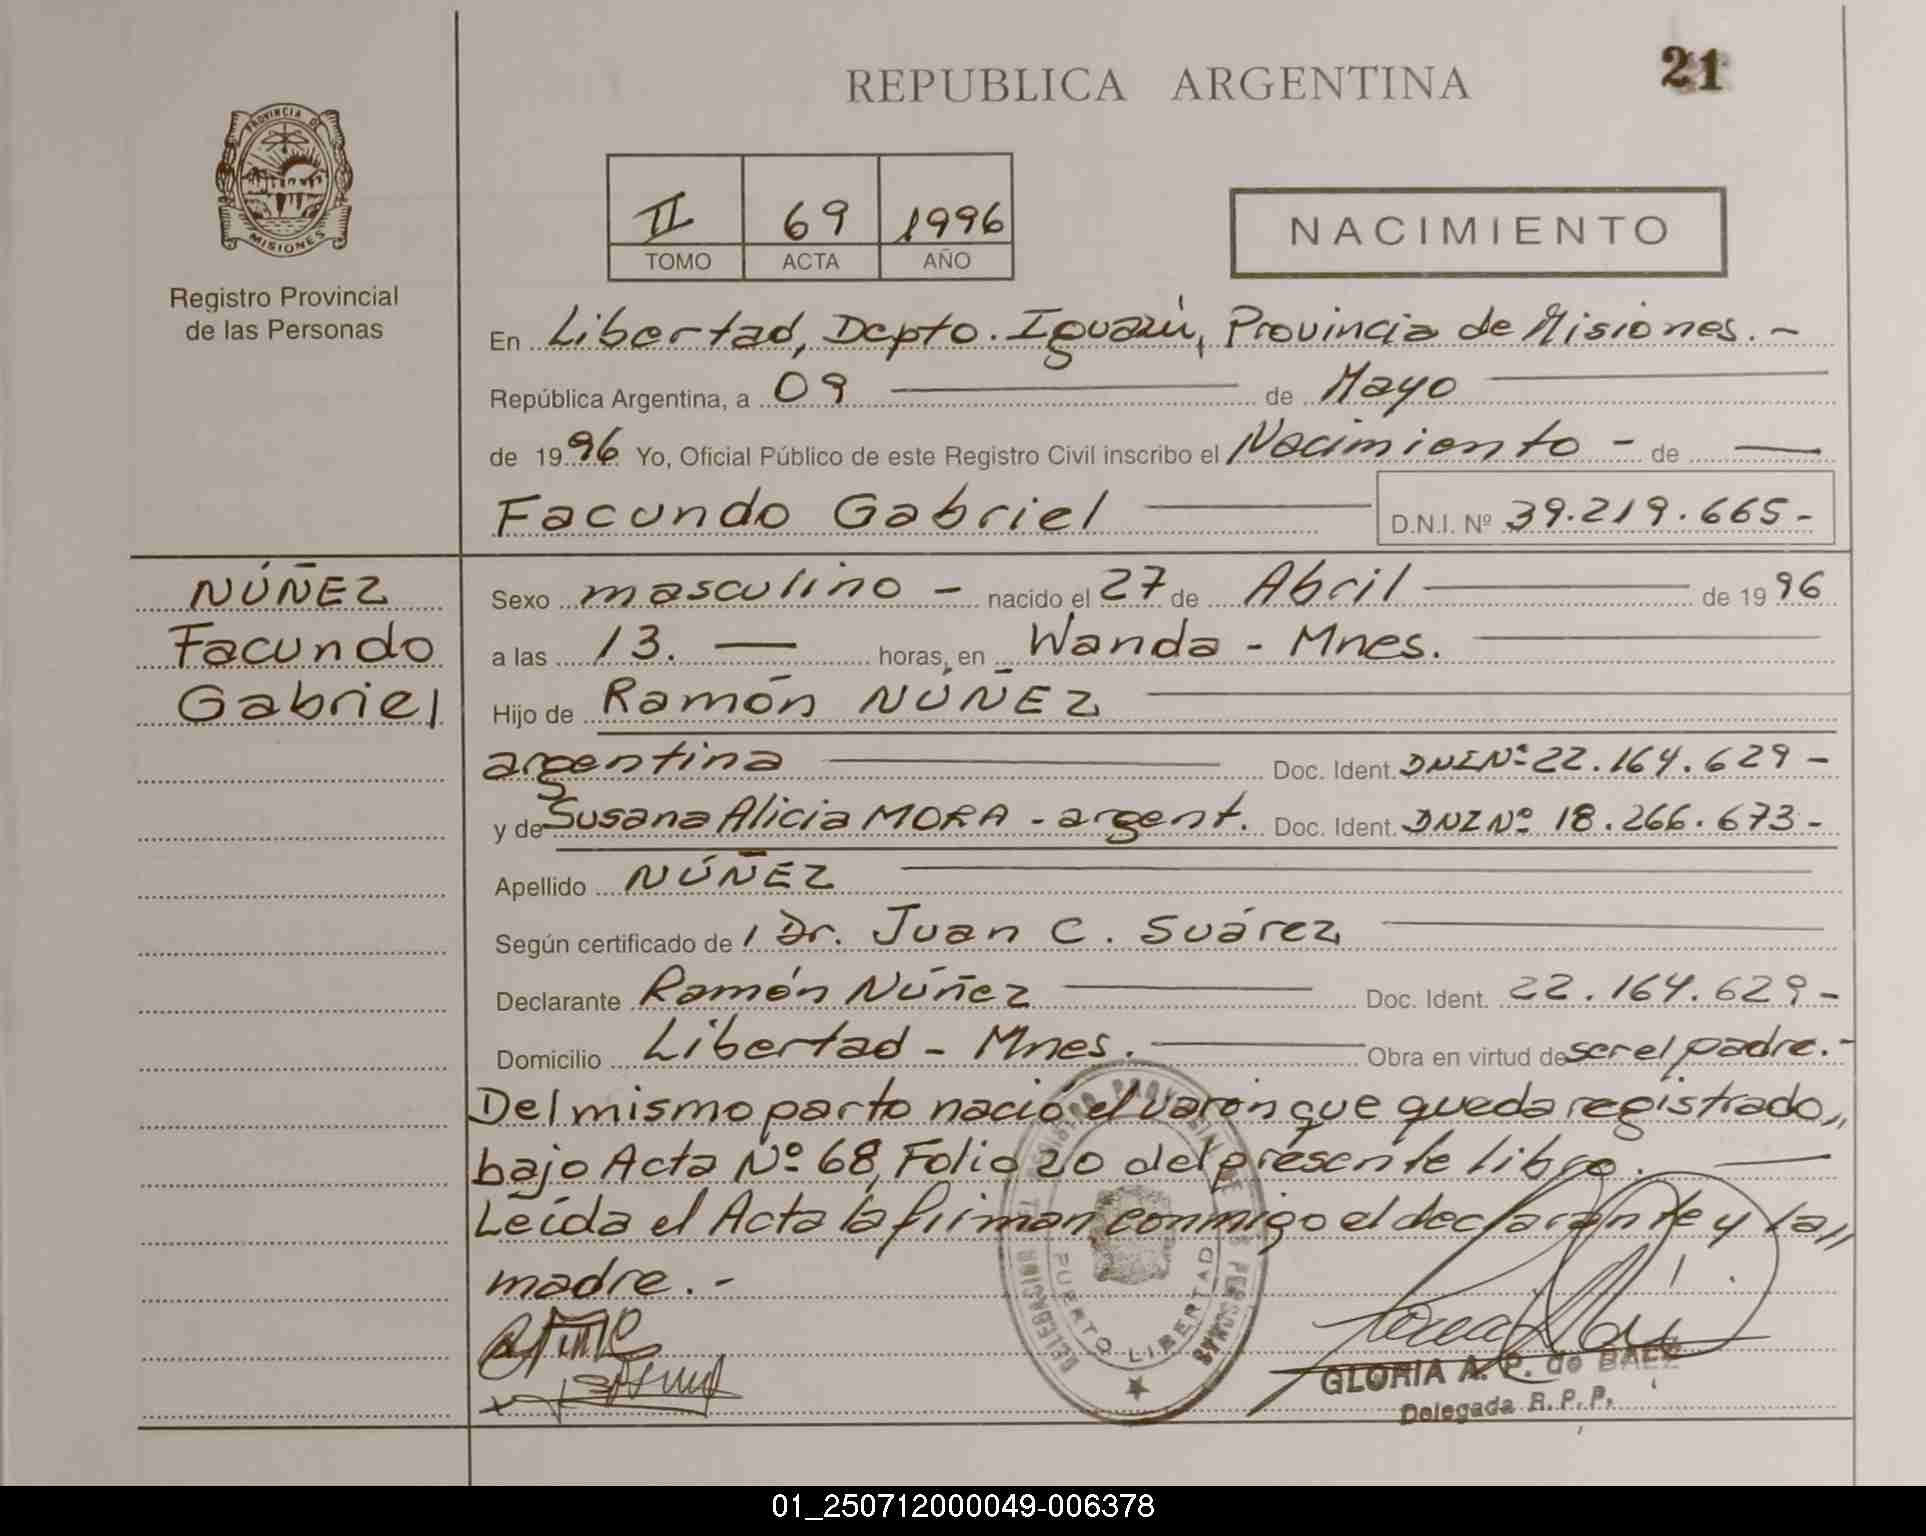 REPUBLICA ARGENTINA
21
PROVINCIA DE
MISIONES
Registro Provincial
de las Personas
II 69 1996
TOMO ACTA AÑO
NACIMIENTO
En Libertad, Depto. Iguazú, Provincia de Misiones.-
República Argentina, a 09 de Mayo
de 1996 Yo, Oficial Público de este Registro Civil inscribo el Nacimiento - de
Facundo Gabriel D.N.I. Nº 39.219.665-
NÚÑEZ
Facundo
Gabriel
Sexo masculino - nacido el 27 de Abril de 1996
a las 13. — horas, en Wanda - Mnes.
Hijo de Ramón NÚÑEZ
argentina Doc. Ident. DNI Nº 22.164.629-
y de Susana Alicia MORA - argent. Doc. Ident. DNI Nº 18.266.673-
Apellido NÚÑEZ
Según certificado de Dr. Juan C. Suárez
Declarante Ramón Núñez Doc. Ident. 22.164.629-
Domicilio Libertad - Mnes. Obra en virtud de ser el padre.-
Del mismo parto nació el varón que queda registrado,,
bajo Acta Nº 68, Folio 20 del presente libro.
Leída el Acta la firman conmigo el declarante y la,,
madre.-
REGISTRO PROVINCIAL DE LAS PERSONAS
DELEGACION
PUERTO LIBERTAD
GLORIA A. P. de BAEZ
Delegada R.P.P.
01_250712000049-006378